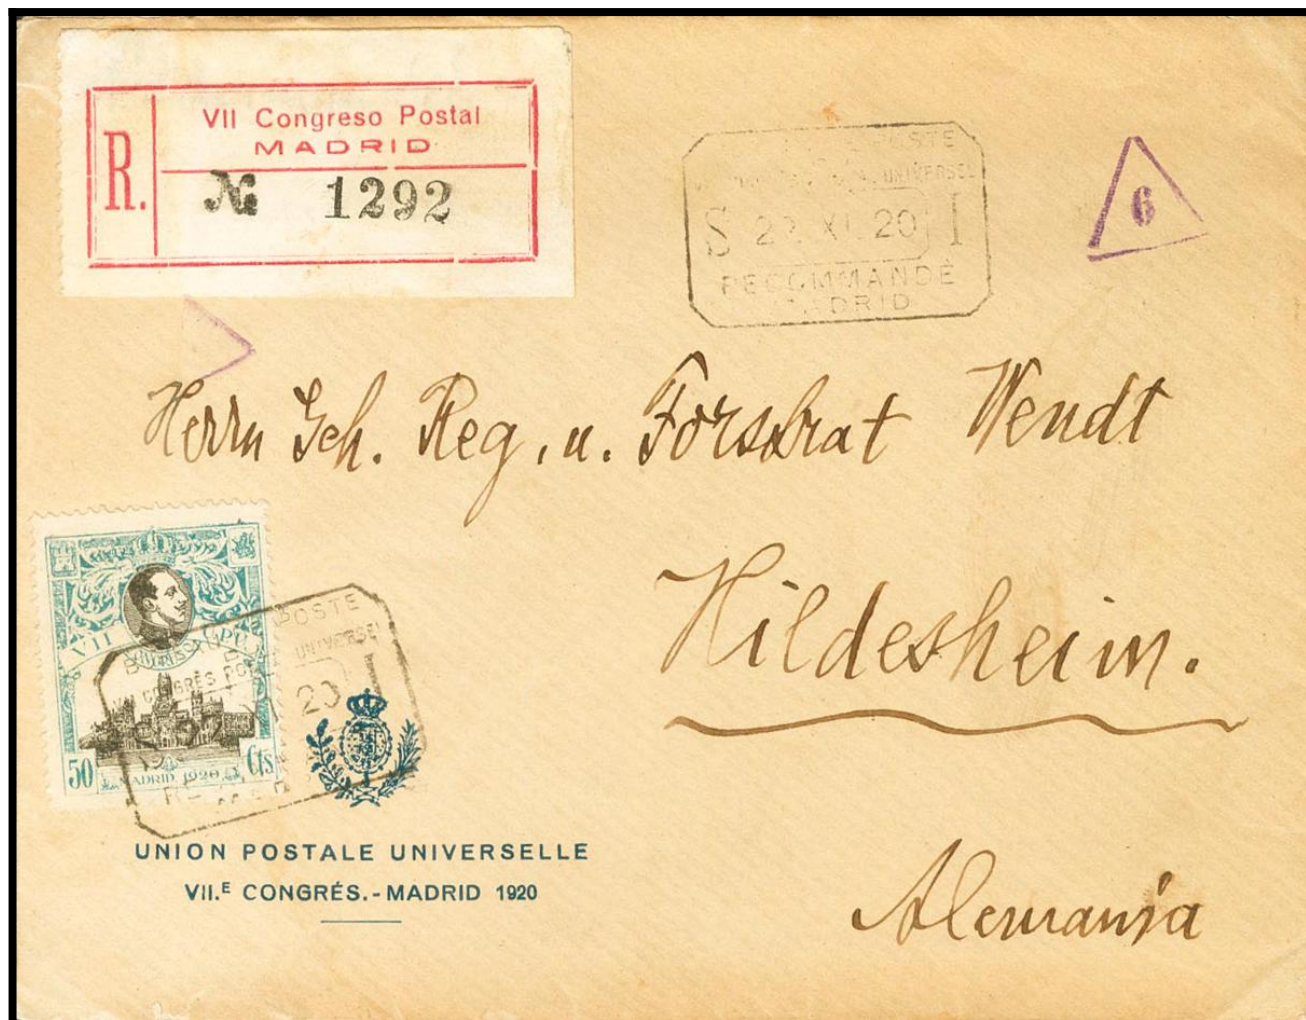 VII Congreso Postal
MADRID
R.
№ 1292
POSTE
UNIVERSEL
S 2 . XI. 20 I
RECOMMANDÉ
MADRID
6
Herrn Geh. Reg. u. Forstrat Wendt
Hildesheim.
Alemania
VII UPU
50 Cts
MADRID 1920
POSTE
CONGRÈS UNIVERSEL
20 I
UNION POSTALE UNIVERSELLE
VII.E CONGRÉS.-MADRID 1920